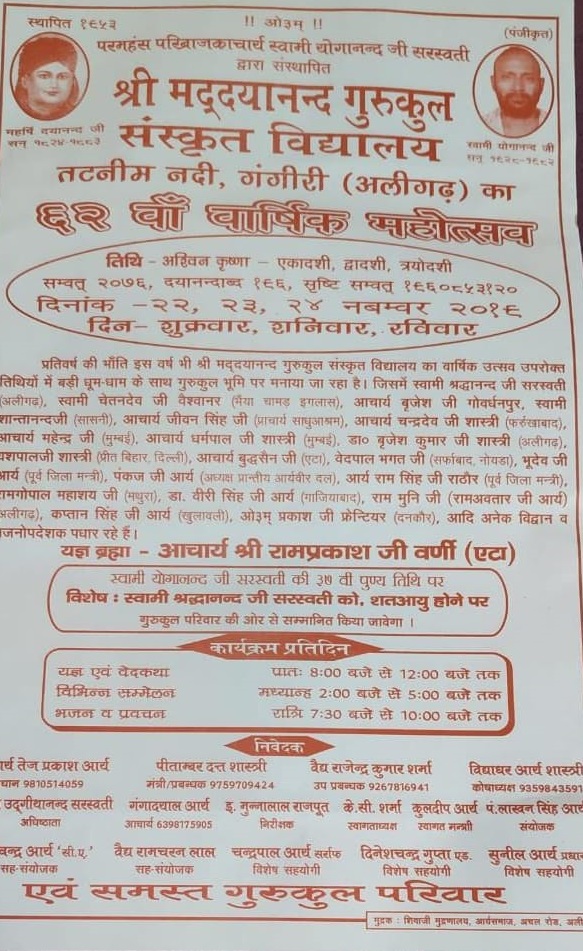 स्थापित १९५३
!! ओ३म् !!
(पंजीकृत)
परमहंस परिव्राजकाचार्य स्वामी योगानन्द जी सरस्वती
द्वारा संस्थापित
श्री मद्‌दयानन्द गुरुकुल
संस्कृत विद्यालय
महर्षि दयानन्द जी
सन् १८२४-१८८३
स्वामी योगानन्द जी
सन् १९२८-१९८२
तटनीम नदी, गंगीरी (अलीगढ़) का
६२ वाँ वार्षिक महोत्सव
तिथि - अश्विन कृष्णा - एकादशी, द्वादशी, त्रयोदशी
सम्वत् २०७६, दयानन्दाब्द १९६, सृष्टि सम्वत् १९६०८५३१२०
दिनांक -२२, २३, २४ नबम्वर २०१९
दिन- शुक्रवार, शनिवार, रविवार
प्रतिवर्ष की भाँति इस वर्ष भी श्री मद्‌दयानन्द गुरुकुल संस्कृत विद्यालय का वार्षिक उत्सव उपरोक्त
तिथियों में बड़ी धूम-धाम के साथ गुरुकुल भूमि पर मनाया जा रहा है। जिसमें स्वामी श्रद्धानन्द जी सरस्वती
(अलीगढ़), स्वामी चेतनदेव जी वैश्वानर (मैया चामड़ इगलास), आचार्य बृजेश जी गोवर्धनपुर, स्वामी
शान्तानन्दजी (सासनी), आचार्य जीवन सिंह जी (प्राचार्य साधुआश्रम), आचार्य चन्द्रदेव जी शास्त्री (फर्रुखाबाद),
आचार्य महेन्द्र जी (मुम्बई), आचार्य धर्मपाल जी शास्त्री (मुम्बई), डा० बृजेश कुमार जी शास्त्री (अलीगढ़),
यशपालजी शास्त्री (प्रीत बिहार, दिल्ली), आचार्य बुद्धसैन जी (एटा), वेदपाल भगत जी (सर्फाबाद, नोयडा), भूदेव जी
आर्य (पूर्व जिला मन्त्री), पंकज जी आर्य (अध्यक्ष प्रान्तीय आर्यवीर दल), आर्य राम सिंह जी राठौर (पूर्व जिला मन्त्री),
रामगोपाल महाशय जी (मथुरा), डा. वीरी सिंह जी आर्य (गाजियाबाद), राम मुनि जी (रामअवतार जी आर्य)
अलीगढ़), कप्तान सिंह जी आर्य (खुलावली), ओ३म् प्रकाश जी फ्रेन्टियर (दनकौर), आदि अनेक विद्वान व
जनोपदेशक पधार रहे हैं।
यज्ञ ब्रह्मा - आचार्य श्री रामप्रकाश जी वर्णी (एटा)
स्वामी योगानन्द जी सरस्वती की ३७ वी पुण्य तिथि पर
विशेष : स्वामी श्रद्धानन्द जी सरस्वती को, शतआयु होने पर
गुरुकुल परिवार की ओर से सम्मानित किया जावेगा ।
कार्यक्रम प्रतिदिन
यज्ञ एवं वेदकथा प्रातः 8:00 बजे से 12:00 बजे तक
विभिन्न सम्मेलन मध्यान्ह 2:00 बजे से 5:00 बजे तक
भजन व प्रवचन रात्रि 7:30 बजे से 10:00 बजे तक
निवेदक
र्य तेज प्रकाश आर्य पीताम्बर दत्त शास्त्री वैद्य राजेन्द्र कुमार शर्मा विद्याधर आर्य शास्त्री
धान 9810514059 मंत्री/प्रबन्धक 9759709424 उप प्रबन्धक 9267816941 कोषाध्यक्ष 9359843591
उद्‌गीथानन्द सरस्वती गंगादयाल आर्य इ. मुन्नालाल राजपूत के.सी. शर्मा कुलदीप आर्य पं.लाखन सिंह आर्य
अधिष्ठाता आचार्य 6398175905 निरीक्षक स्वागताध्यक्ष स्वागत मन्त्री संयोजक
चन्द्र आर्य 'सी.ए.' वैद्य रामचरन लाल चन्द्रपाल आर्य सर्राफ दिनेशचन्द्र गुप्ता एड. सुनील आर्य प्रधान
सह-संयोजक सह-संयोजक विशेष सहयोगी विशेष सहयोगी विशेष सहयोगी
एवं समस्त गुरुकुल परिवार
मुद्रक : शिवाजी मुद्रणालय, आर्यसमाज, अचल रोड, अली